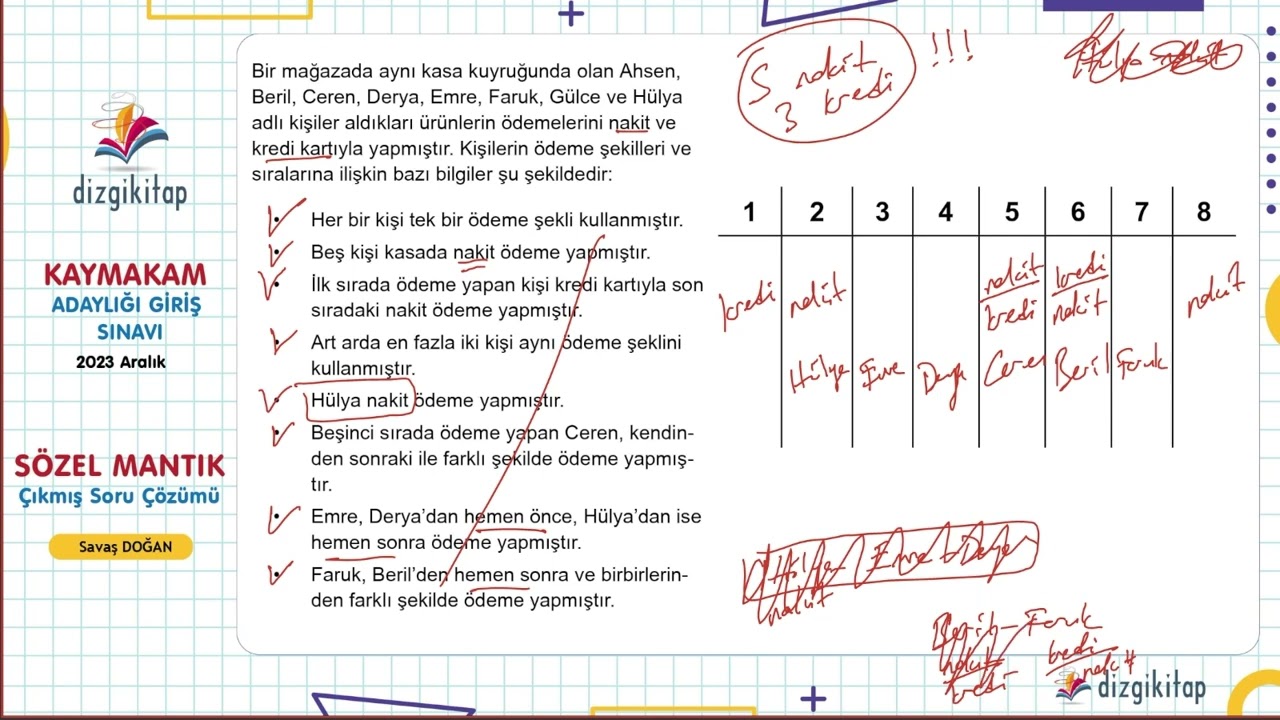 5 nakit
3 kredi
!!!
Bir mağazada aynı kasa kuyruğunda olan Ahsen,
Beril, Ceren, Derya, Emre, Faruk, Gülce ve Hülya
adlı kişiler aldıkları ürünlerin ödemelerini nakit ve
kredi kartıyla yapmıştır. Kişilerin ödeme şekilleri ve
sıralarına ilişkin bazı bilgiler şu şekildedir:
• Her bir kişi tek bir ödeme şekli kullanmıştır.
• Beş kişi kasada nakit ödeme yapmıştır.
• İlk sırada ödeme yapan kişi kredi kartıyla son
sıradaki nakit ödeme yapmıştır.
• Art arda en fazla iki kişi aynı ödeme şeklini
kullanmıştır.
• Hülya nakit ödeme yapmıştır.
• Beşinci sırada ödeme yapan Ceren, kendin-
den sonraki ile farklı şekilde ödeme yapmış-
tır.
• Emre, Derya’dan hemen önce, Hülya’dan ise
hemen sonra ödeme yapmıştır.
• Faruk, Beril’den hemen sonra ve birbirlerin-
den farklı şekilde ödeme yapmıştır.
dizgikitap
KAYMAKAM
ADAYLIĞI GİRİŞ
SINAVI
2023 Aralık
SÖZEL MANTIK
Çıkmış Soru Çözümü
Savaş DOĞAN
1 2 3 4 5 6 7 8
nakit kredi
kredi nakit kredi nakit nakit
Hülya Emre Derya Ceren Beril Faruk
Hülya Emre Derya
nakit
Beril - Faruk
nakit kredi
kredi nakit
dizgikitap